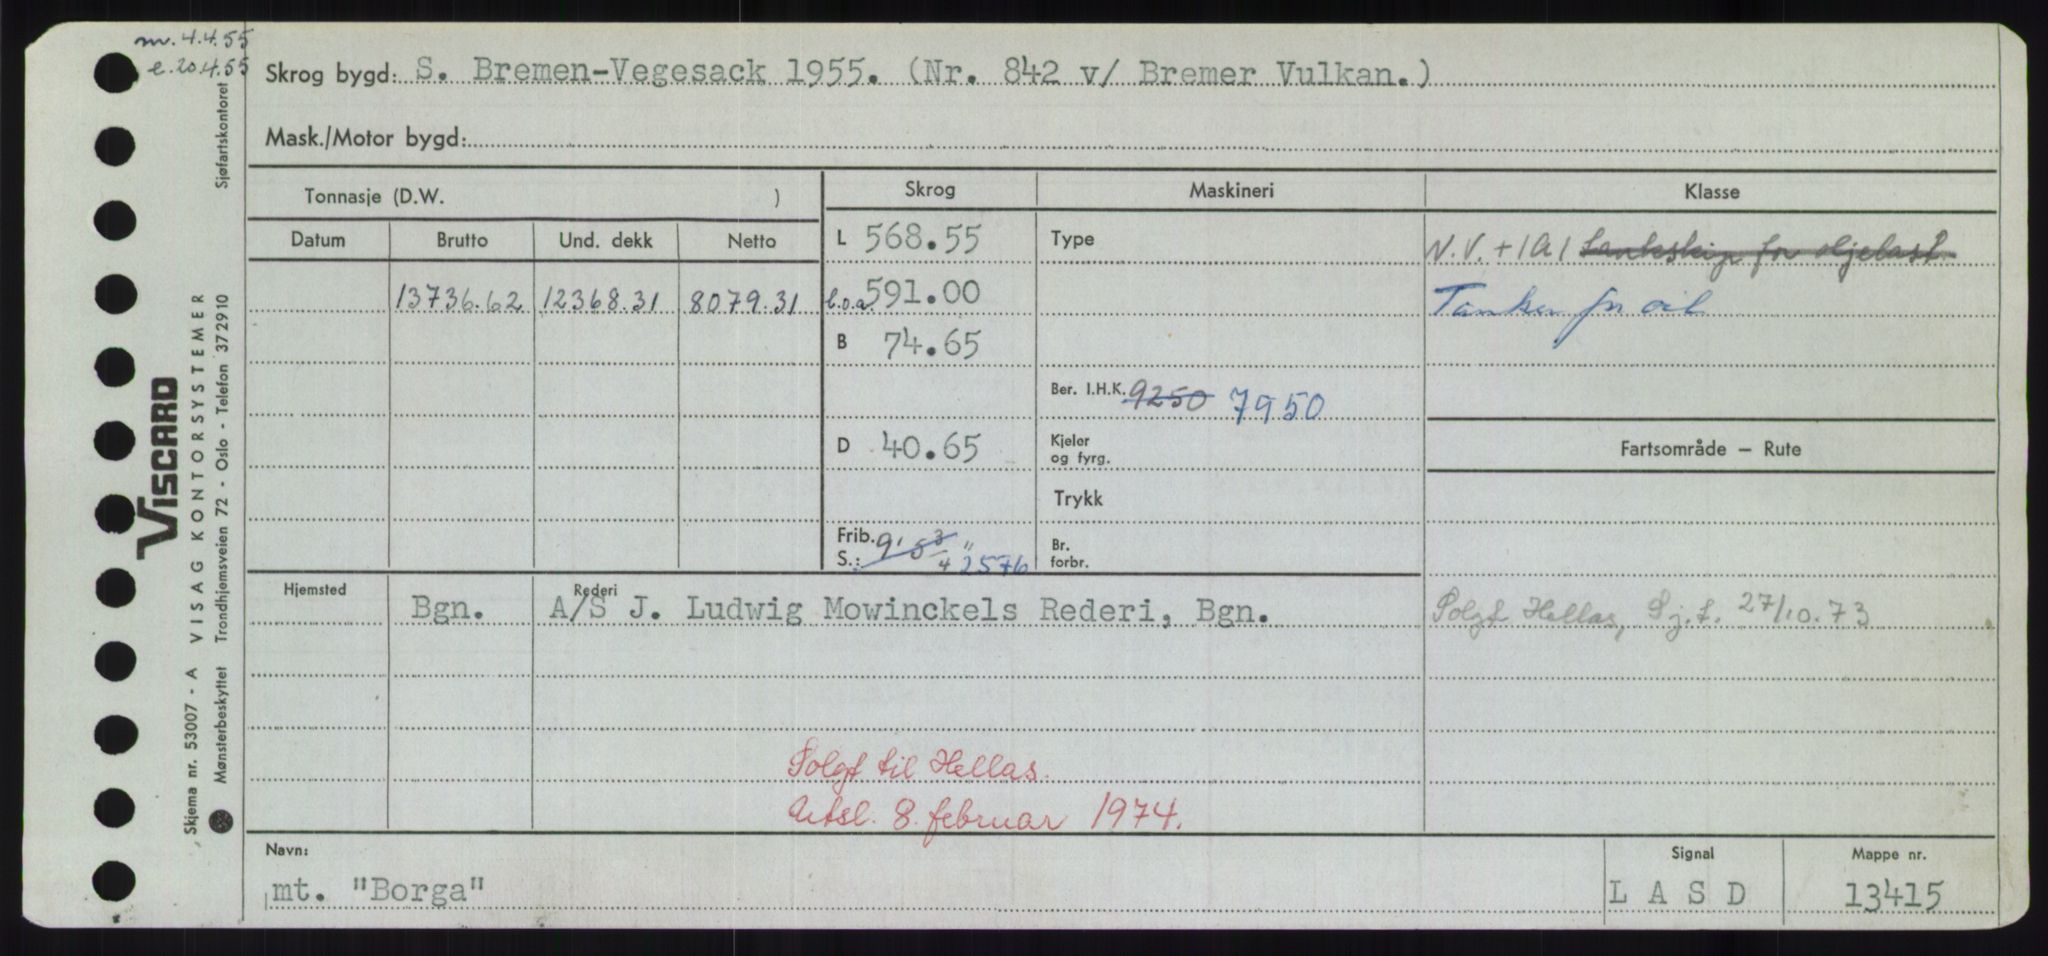 m. 4.4.55
e. 20.4.55
Skrog bygd: S. Bremen-Vegesack 1955. (Nr. 842 v/ Bremer Vulkan.)
Mask./Motor bygd:
Tonnasje (D.W. )
Datum Brutto Und. dekk Netto
13736.62 12368.31 8079.31
Skrog
L 568.55
l.o.a. 591.00
B 74.65
D 40.65
Frib. 9' 5 3/4 "
S.: 2576
Maskineri
Type
Ber. I.H.K. 9250 7950
Kjeler
og fyrg.
Trykk
Br.
forbr.
Klasse
N.V. + 1A1 tankskip for oljelast
Tanker for oil
Fartsområde – Rute
Solgt Hellas, Sj.f. 27/10.73
Hjemsted Rederi
Bgn. A/S J. Ludwig Mowinckels Rederi, Bgn.
Solgt til Hellas.
Utsl. 8. februar 1974.
Navn: Signal Mappe nr.
mt. "Borga" LASD 13415
VISCARD
Skjema nr. 53007 - A VISAG KONTORSYSTEMER
Mønsterbeskyttet Trondhjemsveien 72 - Oslo - Telefon 372910 Sjøfartskontoret